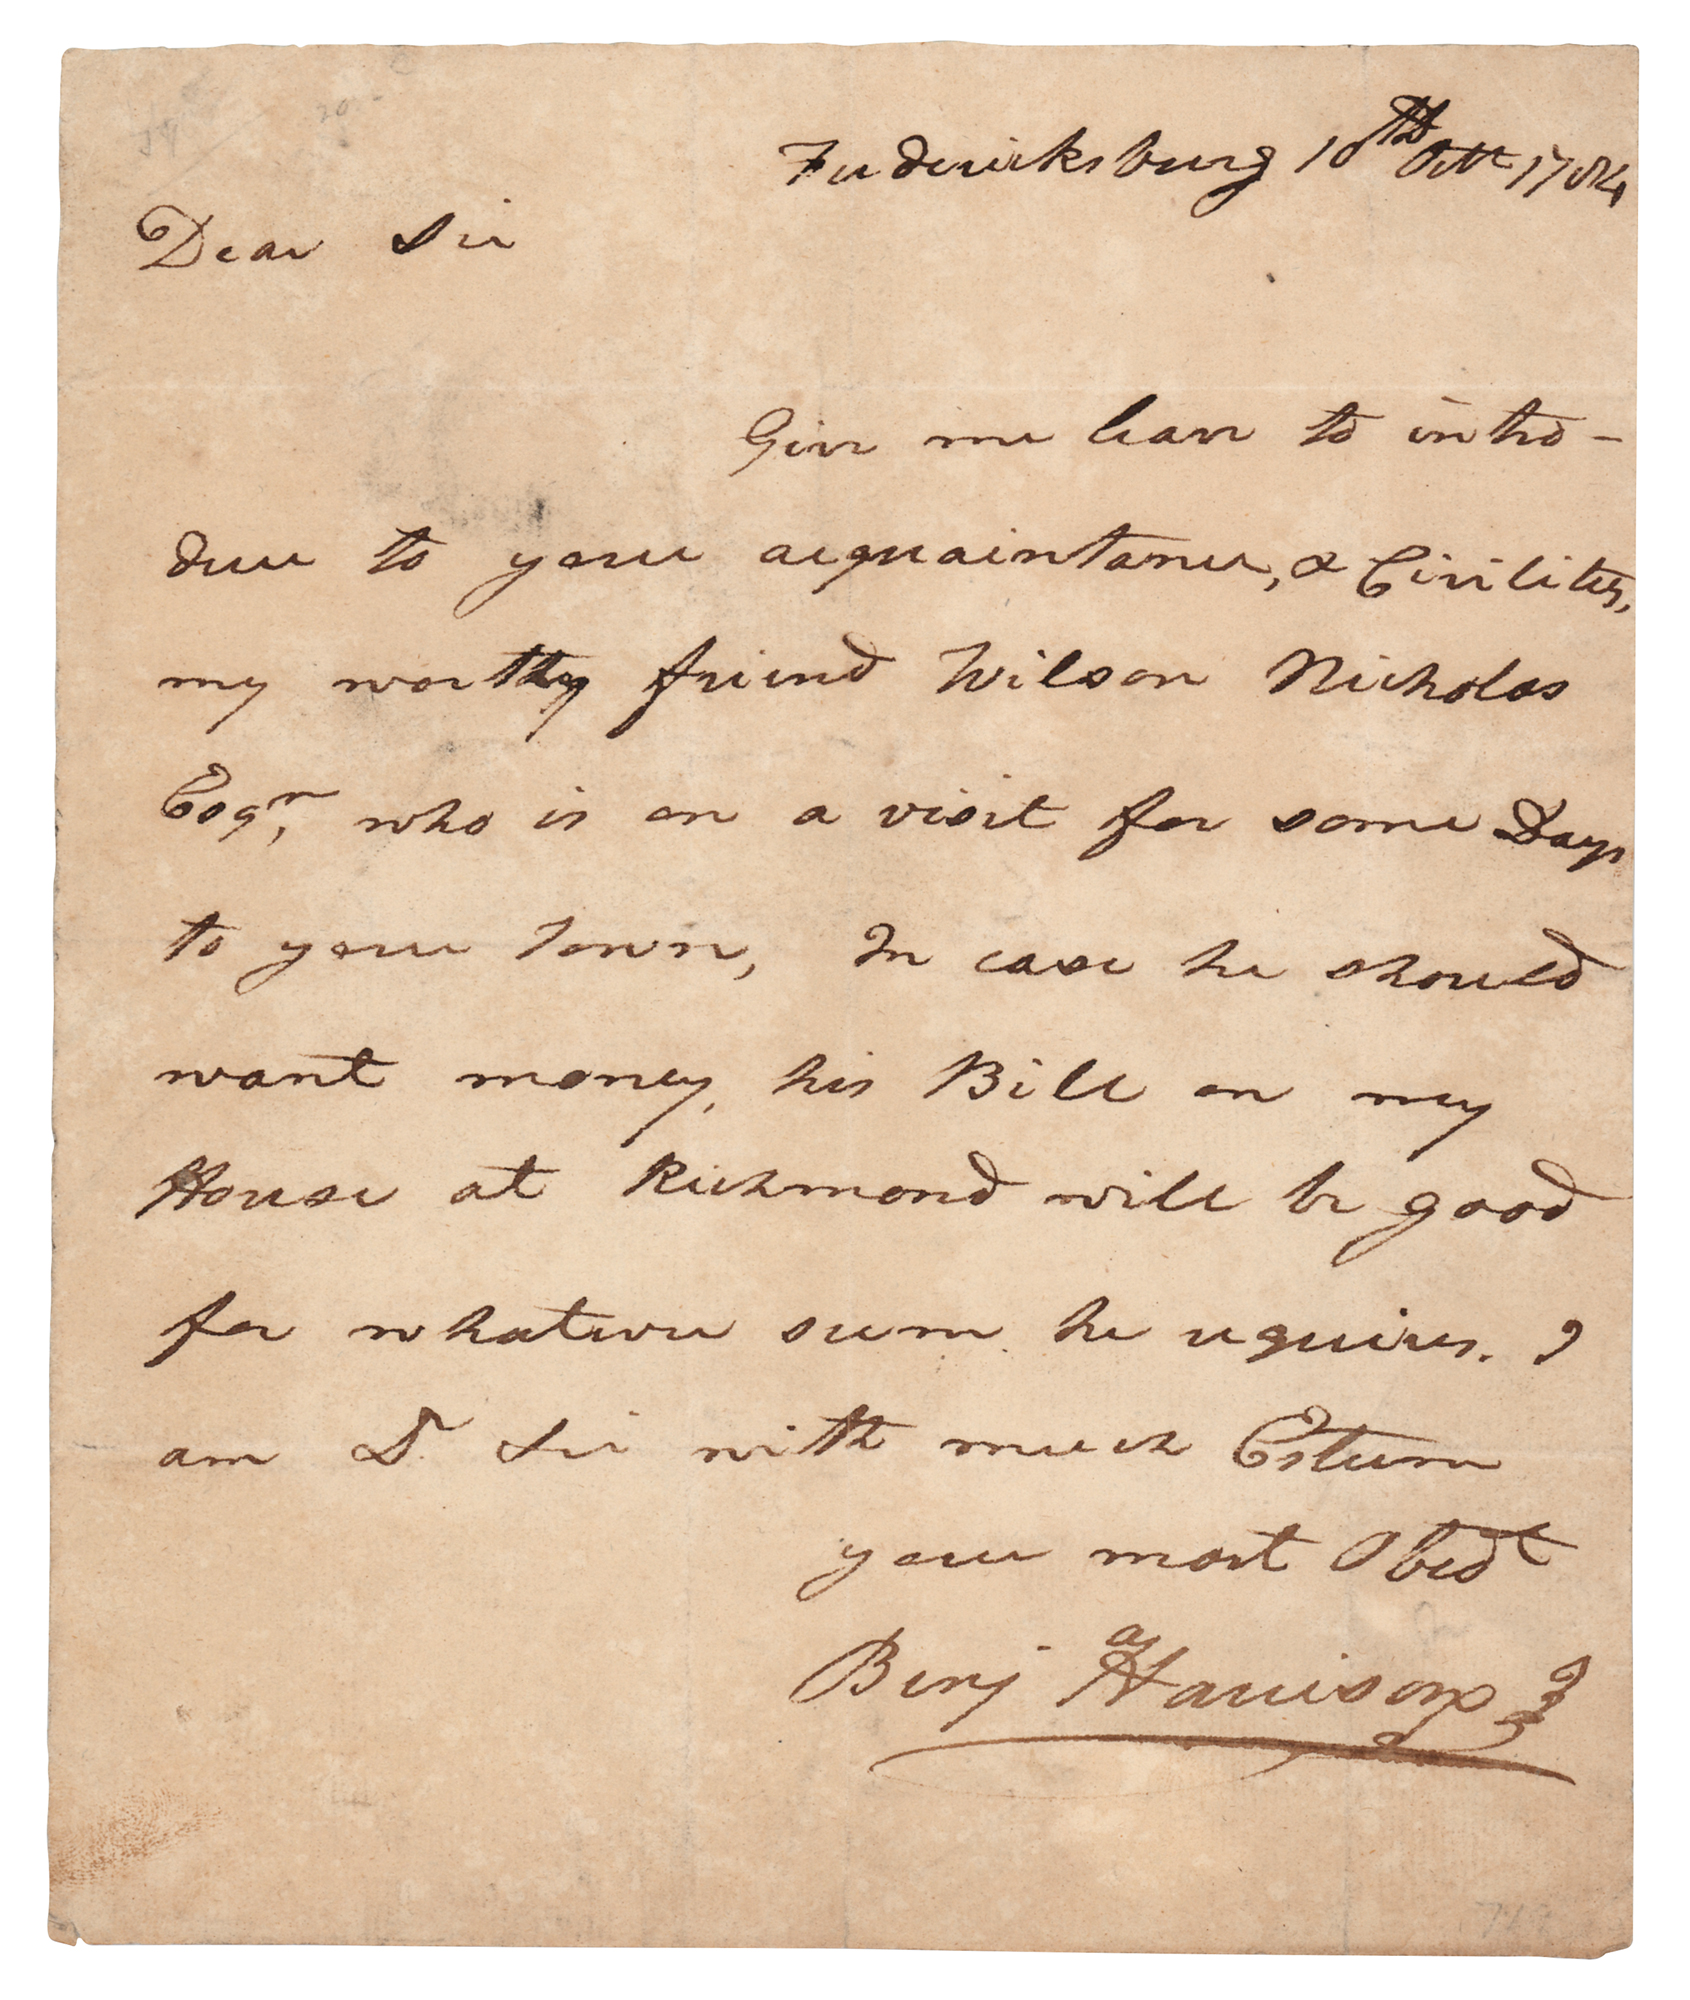 Fredericksburg 10th Octr 1784
Dear Sir
Give me leave to intro-
duce to your acquaintance, & Civilities,
my worthy friend Wilson Nicholas
Esqr, who is on a visit for some Days
to your Town, In case he should
want money, his Bill on my
House at Richmond will be good
for whatever sum he requires. I
am Dr Sir with much Esteem
your most Obedt
Benja Harrison J